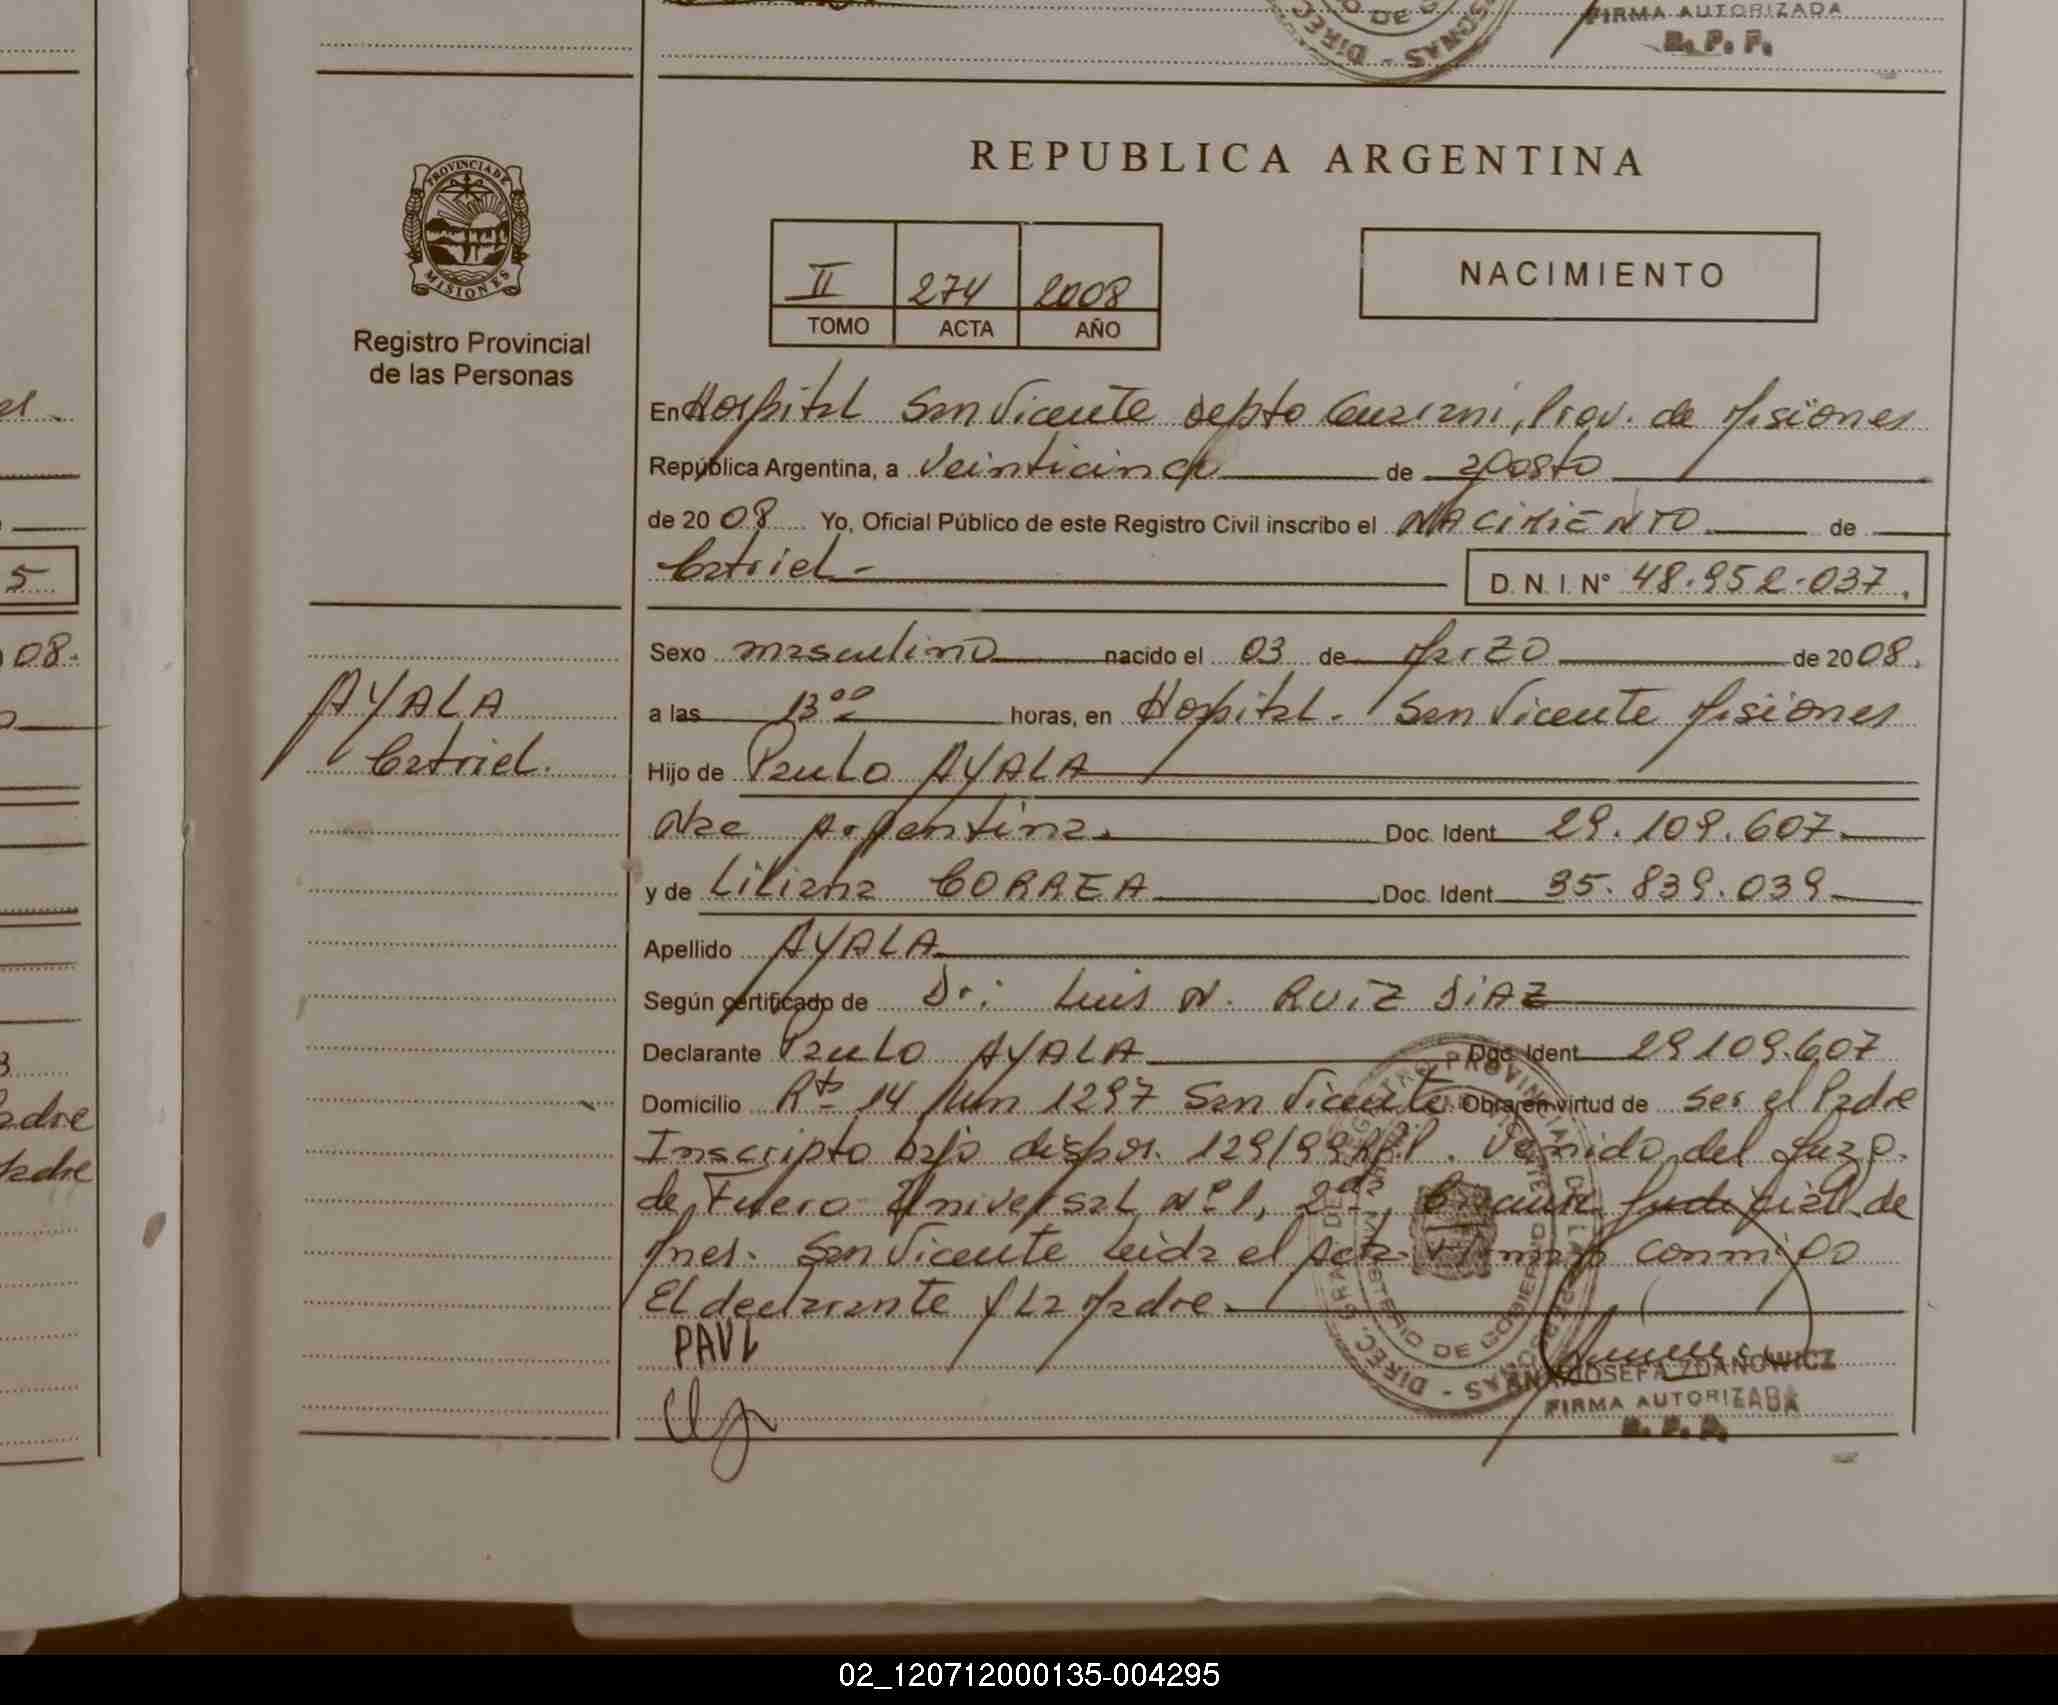 FIRMA AUTORIZADA
R. P. P.
PROVINCIA DE
MISIONES
Registro Provincial
de las Personas
REPUBLICA ARGENTINA
II 274 2008
TOMO ACTA AÑO
NACIMIENTO
En Hospital San Vicente Depto Guarani, Prov. de Misiones
República Argentina, a veinticinco de agosto
de 2008 Yo, Oficial Público de este Registro Civil inscribo el NACIMIENTO de
Catriel
D. N. I. N° 48.952.037.
Sexo masculino nacido el 03 de Marzo de 2008.
AYALA
Catriel.
a las 13 00 horas, en Hospital. San Vicente Misiones
Hijo de Paulo AYALA
Nac Argentina. Doc. Ident. 29.109.607.
y de Liliana CORREA Doc. Ident. 35.839.039
Apellido AYALA
Según certificado de Dr: Luis N. RUIZ DIAZ
Declarante Paulo AYALA Doc. Ident. 29109.607
Domicilio Rta 14 Km 1297 San Vicente. Obra en virtud de ser el Padre
Inscripto bajo dispos. 129/99 Venido del Juzg.
de Fuero Universal Nº 1, 2da Judicial de
Mnes. San Vicente Leida el Acta firman conmigo
El declarante y La Madre.
PAUL
ANA JOSEFA ZDANOWICZ
FIRMA AUTORIZADA
R. P. P.
5
08.
adre
adre
02_120712000135-004295